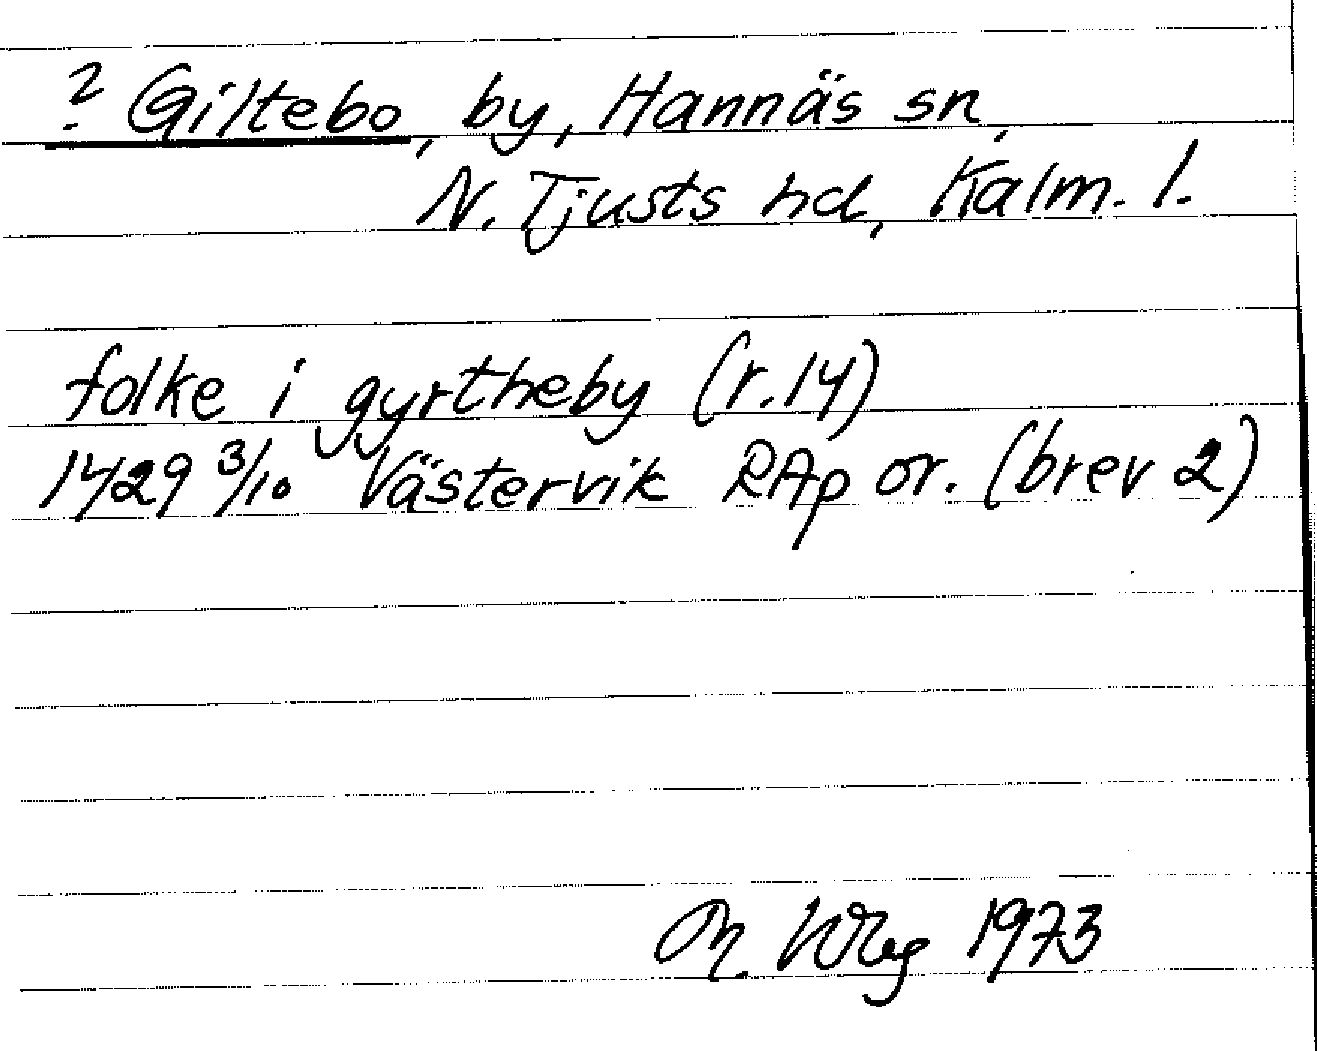 ? Giltebo, by, Hannäs sn,
N. Tjusts hd, Kalm. l.
folke i gyrtheby (r. 14)
1429 3/10 Västervik RAp or. (brev 2)
M. Wbg 1973